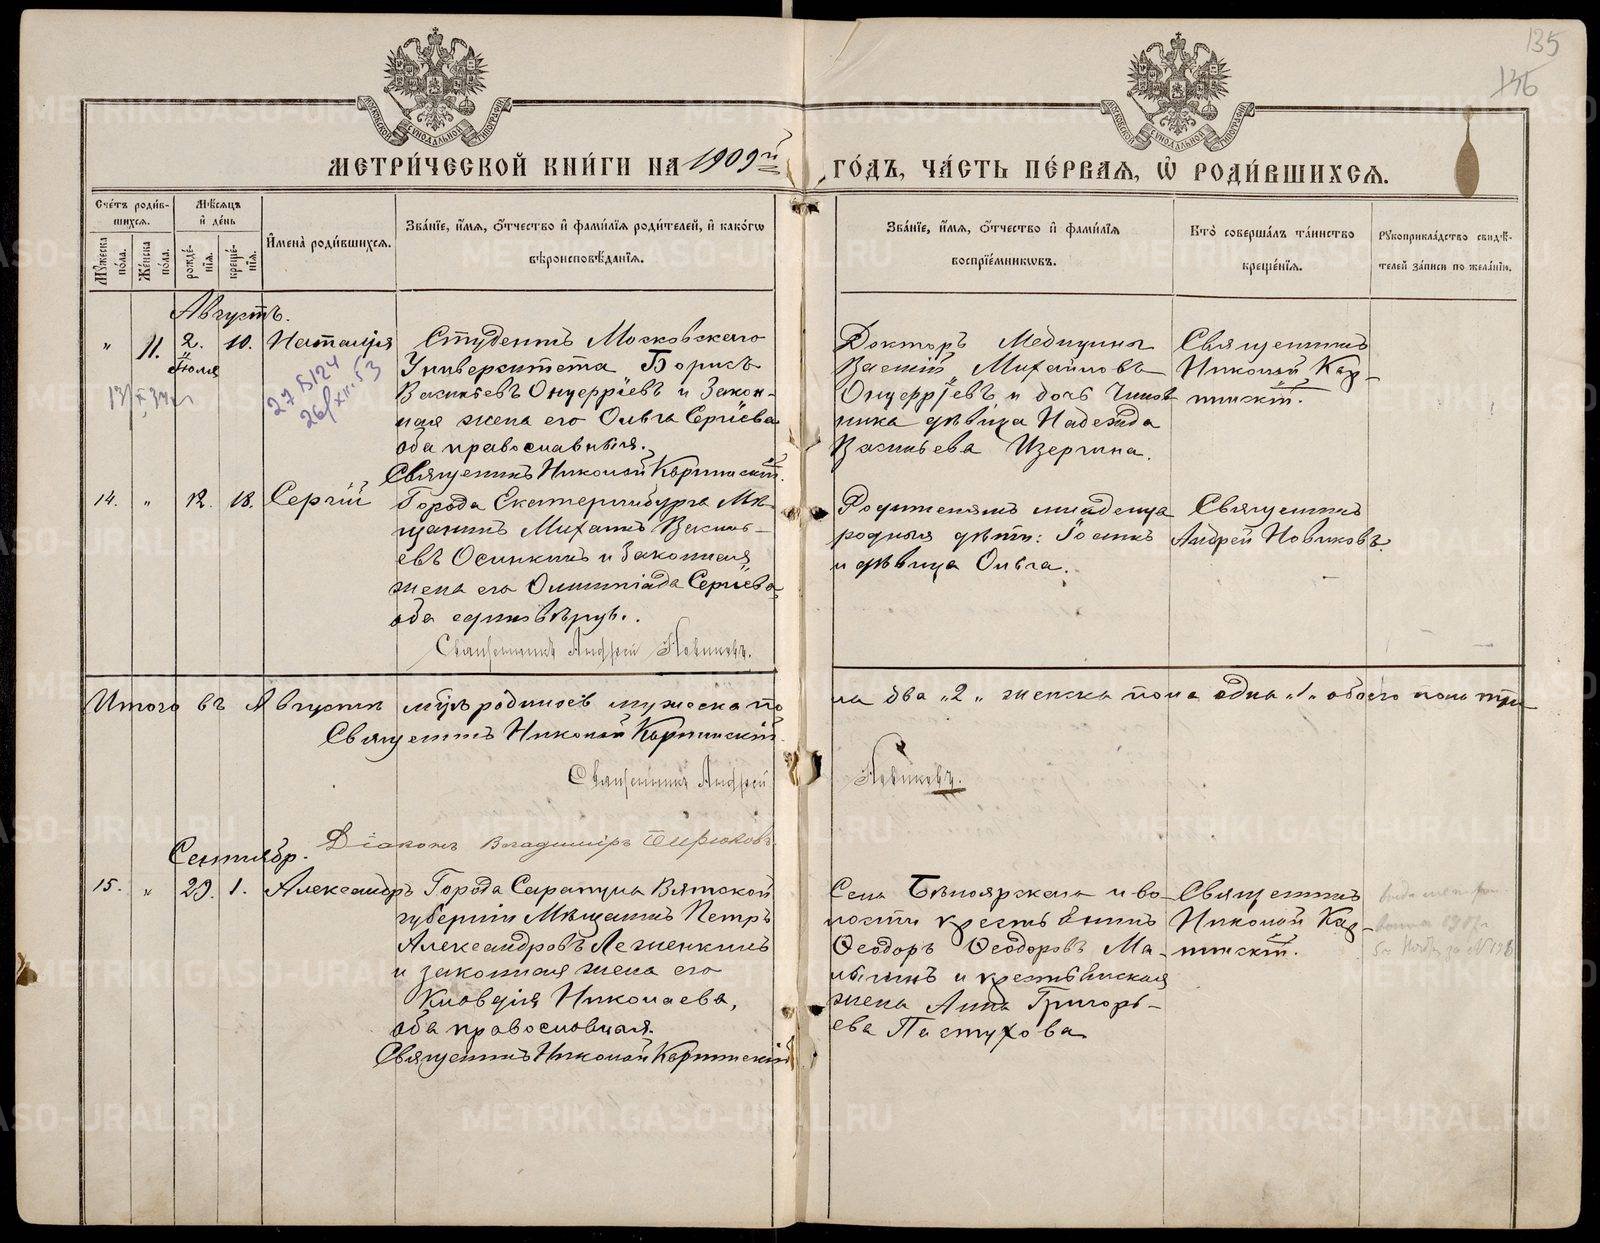 135
МОСКОВСКОЙ СУНОДАЛЬНОЙ ТИПОГРАФІИ
МОСКОВСКОЙ СУНОДАЛЬНОЙ ТИПОГРАФІИ
МЕТРИ́ЧЕСКОЙ КНИ́ГИ НА 1909й ГО́ДЪ, ЧА́СТЬ ПЕ́РВАѦ, Ѡ҆ РОДИ́ВШИХСѦ.
Сче́тъ роди́в-
шихсѧ.
Мꙋ́жеска по́ла.
Же́нска по́ла.
Мѣ́сѧцъ
и҆ де́нь
рожде́-
нїѧ.
креще́-
нїѧ.
И҆мена̀ роди́вшихсѧ.
Зва́нїе, и҆́мѧ, ѻ҆́тчество и҆ фами́лїѧ роди́телей, и҆ како́гѡ
вѣроисповѣ́данїѧ.
Зва́нїе, и҆́мѧ, ѻ҆́тчество и҆ фами́лїѧ
воспрїе́мникѡвъ.
Кто̀ соверша́лъ та́инство
креще́нїѧ.
Рꙋкоприкла́дство свидѣ́-
телей за́писи по жела́нїю.
Августъ.
" 11. 2. Іюля 10. Наталія
Студентъ Московскаго
Университета Борисъ
Васильевъ Онуфріевъ и закон-
ная жена его Ольга Сергіева
оба православныя.
Священникъ Николай Карпинскій.
Докторъ Медицины
Василій Михайловъ
Онуфріевъ и дочь Чинов
ника дѣвица Надежда
Васильева Изергина.
Священникъ
Николай Кар-
пинскій.
14. " 12. 18. Сергій
Города Екатеринбурга Мѣ-
щанинъ Михаилъ Василь-
евъ Осинкинъ и законная
жена его Олимпіада Сергіева
оба единовѣрцы.
Священникъ Андрей Новиковъ.
Родителямъ младенца
родныя дѣти: Іосифъ
и дѣвица Ольга.
Священникъ
Андрей Новиковъ.
Итого въ Августѣ м҃цѣ родилось мужеска по
ла два "2" женска пола одна "1" обоего пола три
Священникъ Николай Карпинскій.
Священникъ Андрей Новиковъ.
Діаконъ Владиміръ Бирюковъ
Сентябр.
15. " 29. 1. Александръ
Города Сарапула Вятской
губерніи Мѣщанинъ Петръ
Александровъ Леженкинъ
и законная жена его
Клавдія Николаева,
оба православныя.
Священникъ Николай Карпинскій
Села Бѣлоярскаго и во-
лости крестьянинъ
Ѳеодоръ Ѳеодоровъ Ма-
лыгинъ и крестьянская
жена Анна Григорь-
ева Пастухова
Священникъ
Николай Кар-
пинскій.
METRIKI.GASO-URAL.RU